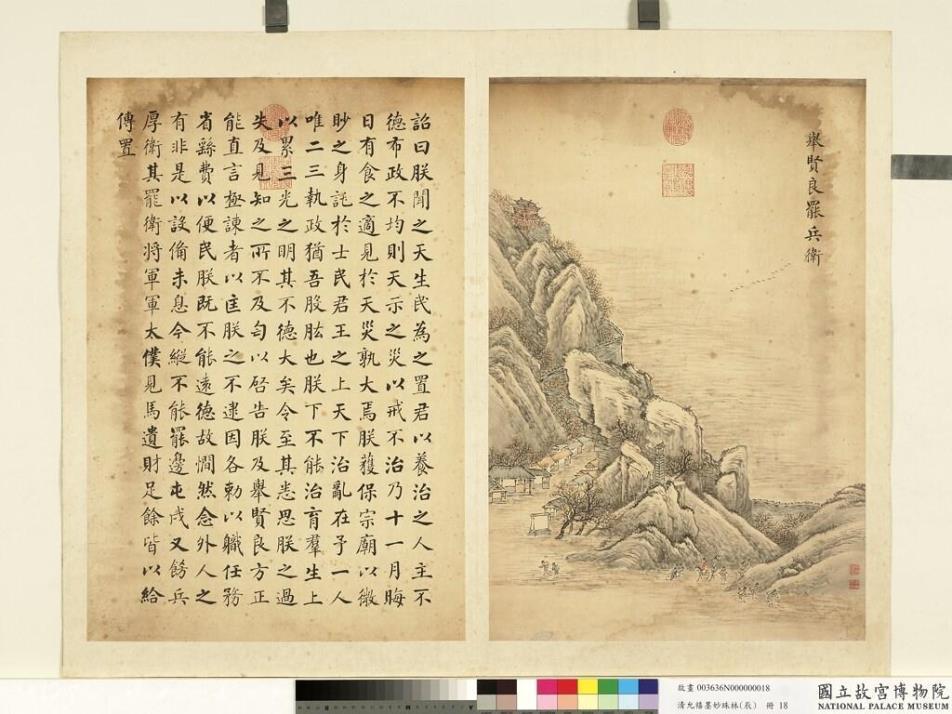 舉賢良罷兵衛
詔曰朕聞之天生民為之置君以養治之人主不
德布政不均則天示之災以戒不治乃十一月晦
日有食之適見於天災孰大焉朕獲保宗廟以微
眇之身託於士民君王之上天下治亂在予一人
唯二三執政猶吾股肱也朕下不能治育羣生上
以累三光之明其不德大矣令至其悉思朕之過
失及見知之所不及匄以啓告朕及舉賢良方正
能直言極諫者以匡朕之不逮因各勅以職任務
省繇費以便民朕既不能遠德故憪然念外人之
有非是以設備未息今縱不能罷邊屯戍又飭兵
厚衛其罷衛將軍軍太僕見馬遺財足餘皆以給
傳置
故畫 003636N000000018
清允禧墨妙珠林(辰) 冊 18
國立故宮博物院
NATIONAL PALACE MUSEUM